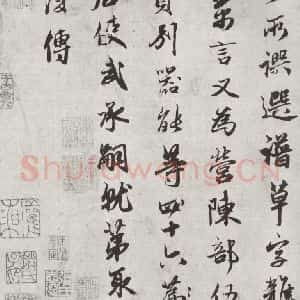 所譔選譜草字雜
萬言又為營陳部伍
負別器能等四十六篇
后使武承嗣就第取
復傳
Shufawang.CN